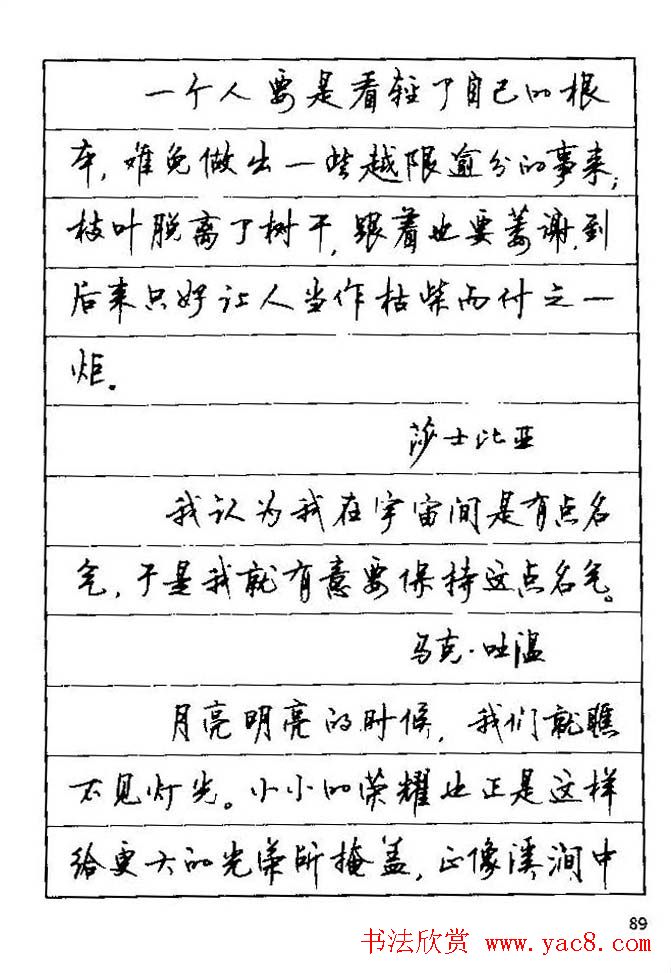 一个人要是看轻了自己的根
本，难免做出一些越限逾分的事来；
枝叶脱离了树干，跟着也要萎谢，到
后来只好让人当作枯柴而付之一
炬。
莎士比亚
我认为我在宇宙间是有点名
气，于是我就有意要保持这点名气。
马克·吐温
月亮明亮的时候，我们就瞧
不见灯光。小小的荣耀也正是这样
给更大的光荣所掩盖，正像溪涧中
89
书法欣赏 www.yac8.com